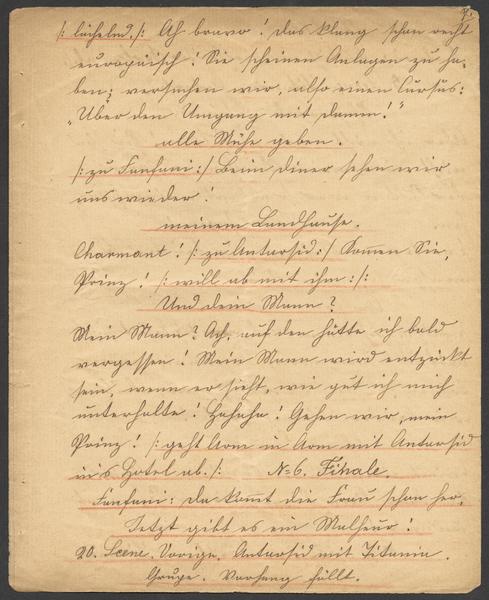 /: lächelnd. :/ Ah bravo! Das klang schon recht
europäisch! Sie scheinen Anlagen zu ha-
ben; versuchen wir, also einen Cursus:
„Über den Umgang mit Damen!"
alle Mühe geben.
/: zu Fanfani :/ Beim Diner sehen wir
uns wieder!
meinem Landhause.
Charmant! /: zu Antarsid :/ Kommen Sie,
Prinz! /: will ab mit ihm :/:
Und dein Mann?
Mein Mann? Ach, auf den hätte ich bald
vergessen! Mein Mann wird entzückt
sein, wenn er sieht, wie gut ich mich
unterhalte! Hahaha! Gehen wir, mein
Prinz! /: geht Arm in Arm mit Antarsid
in's Hotel ab. /: No 6. Finale.
Fanfani: Da kommt die Frau schon her,
Jetzt gibt es ein Malheur!
20. Scene. Vorige. Antarsid mit Titania.
Grupe. Vorhang fällt.